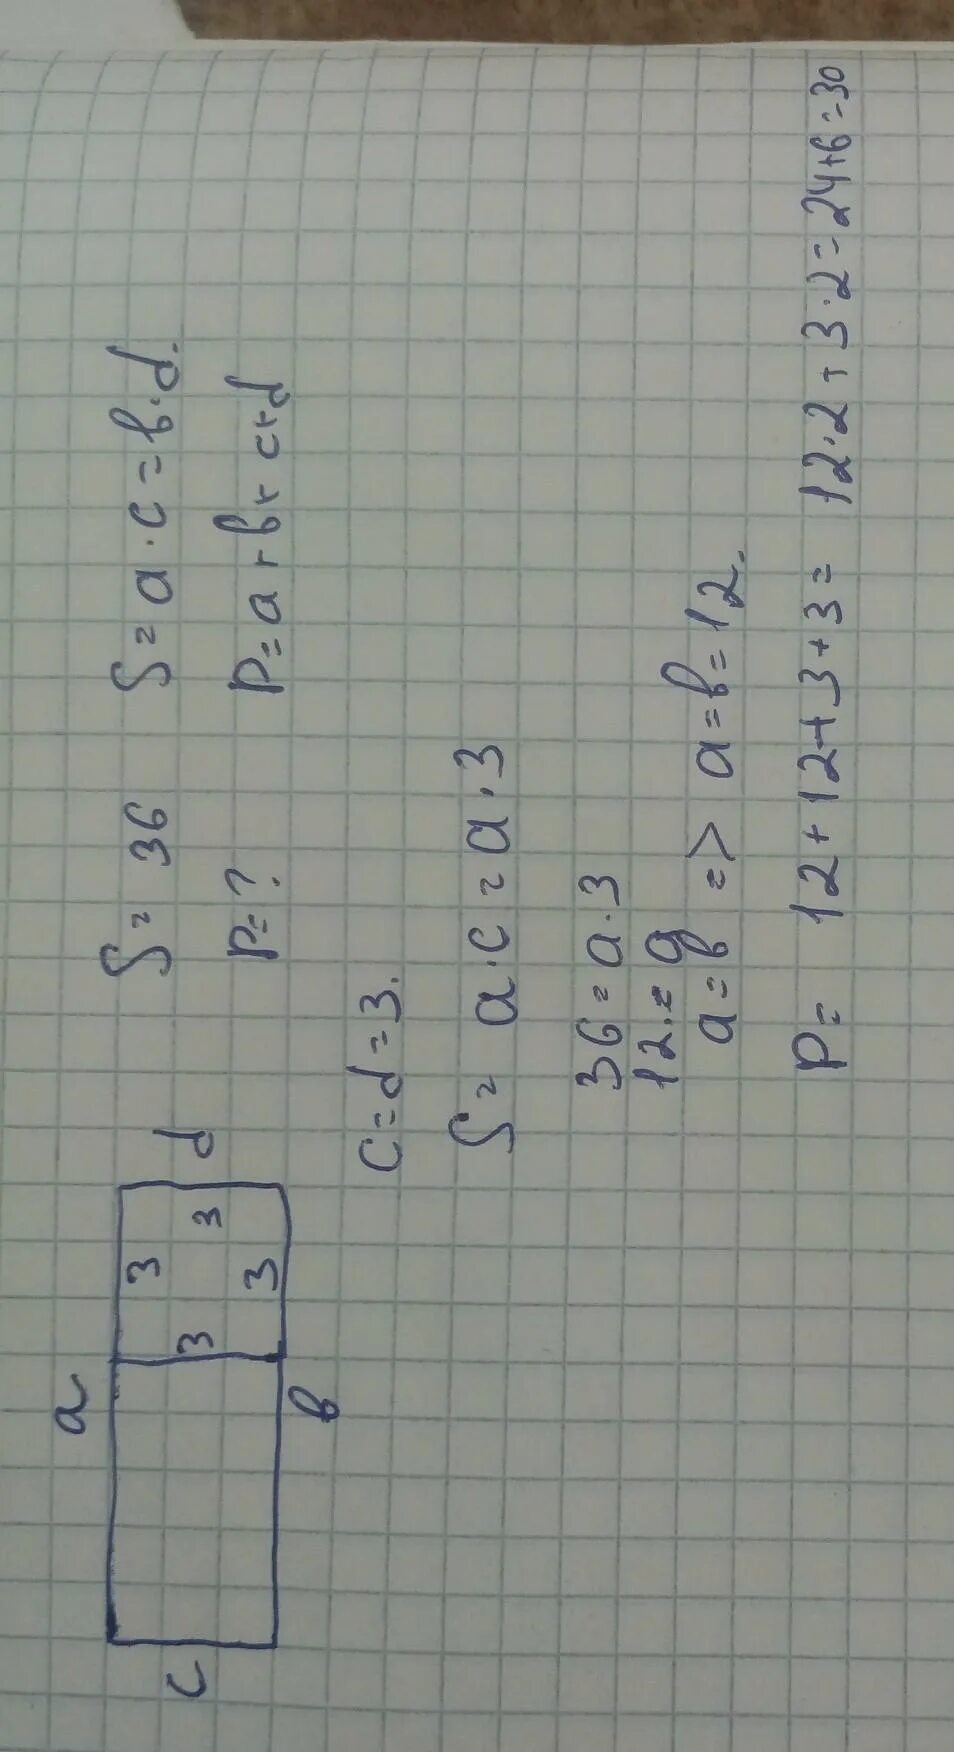 a
c
3
3
3
3
d
в
S = 36
P = ?
S = a · c = в · d.
P = a + в + c + d
c = d = 3.
S = a · c = a · 3
36 = a · 3
12 = a
a = в => a = в = 12.
P = 12 + 12 + 3 + 3 = 12 · 2 + 3 · 2 = 24 + 6 = 30